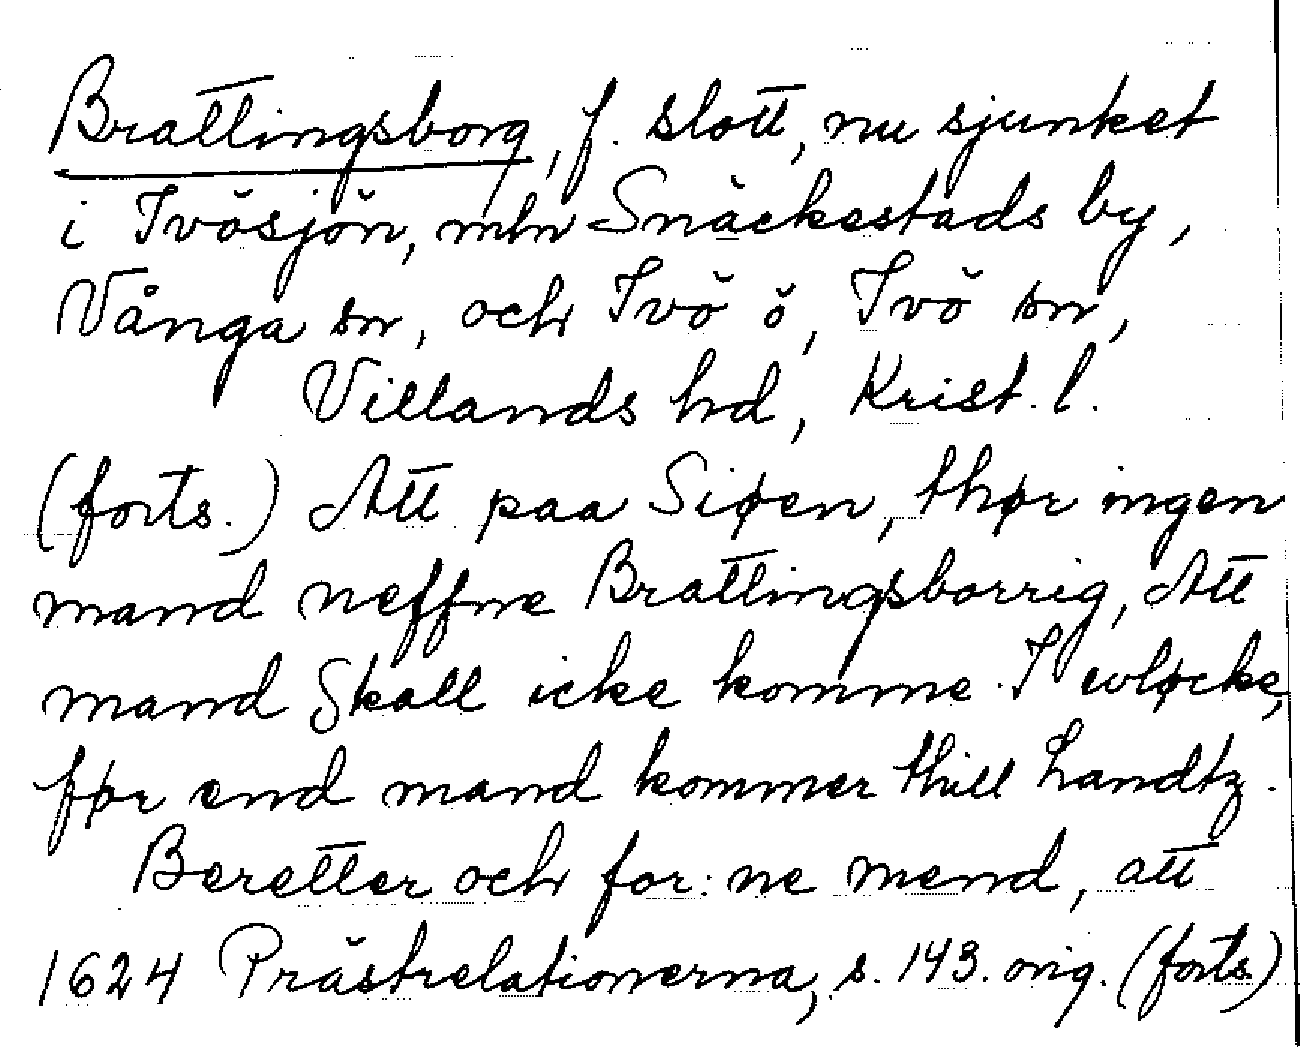 Brattingsborg, f. slott, nu sjunket
i Ivösjön, mln Snäckestads by,
Vånga sn, och Ivö ö, Ivö sn,
Villands hd, Krist. l.
(forts.) Att paa Siøen, thør ingen
mand neffne Brattingsborrig, Att
mand Skall icke komme I wløcke,
før end mand kommer thill Landtz.
Beretter och for: ne mend, att
1624 Prästrelationerna, s. 143. orig. (forts.)